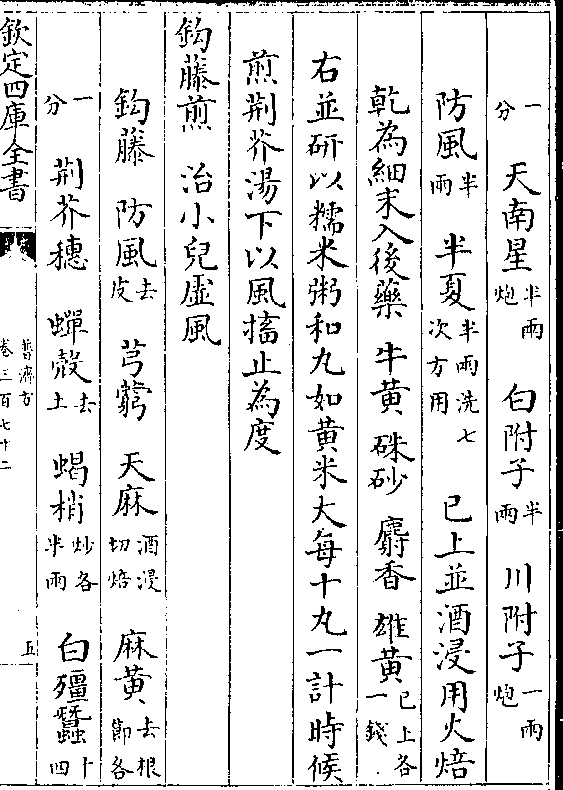 一分　天南星半兩炮　白附子半兩　川附子一兩炮
防風半兩　半夏半兩洗七次方用　已上並酒浸用火焙
乾為細末入後藥　牛黃　硃砂　麝香　雄黃已上各一錢
右並研以糯米粥和丸如黃米大每十丸一計時候
煎荆芥湯下以風搐止為度
鈎藤煎　治小兒虛風
鈎藤　防風去皮　芎藭　天麻酒浸切焙　麻黃去根節各
一分　荆芥穗　蟬殼去土　蝎梢炒各半兩　白殭蠶十四
欽定四庫全書
普濟方
卷三百七十二
五